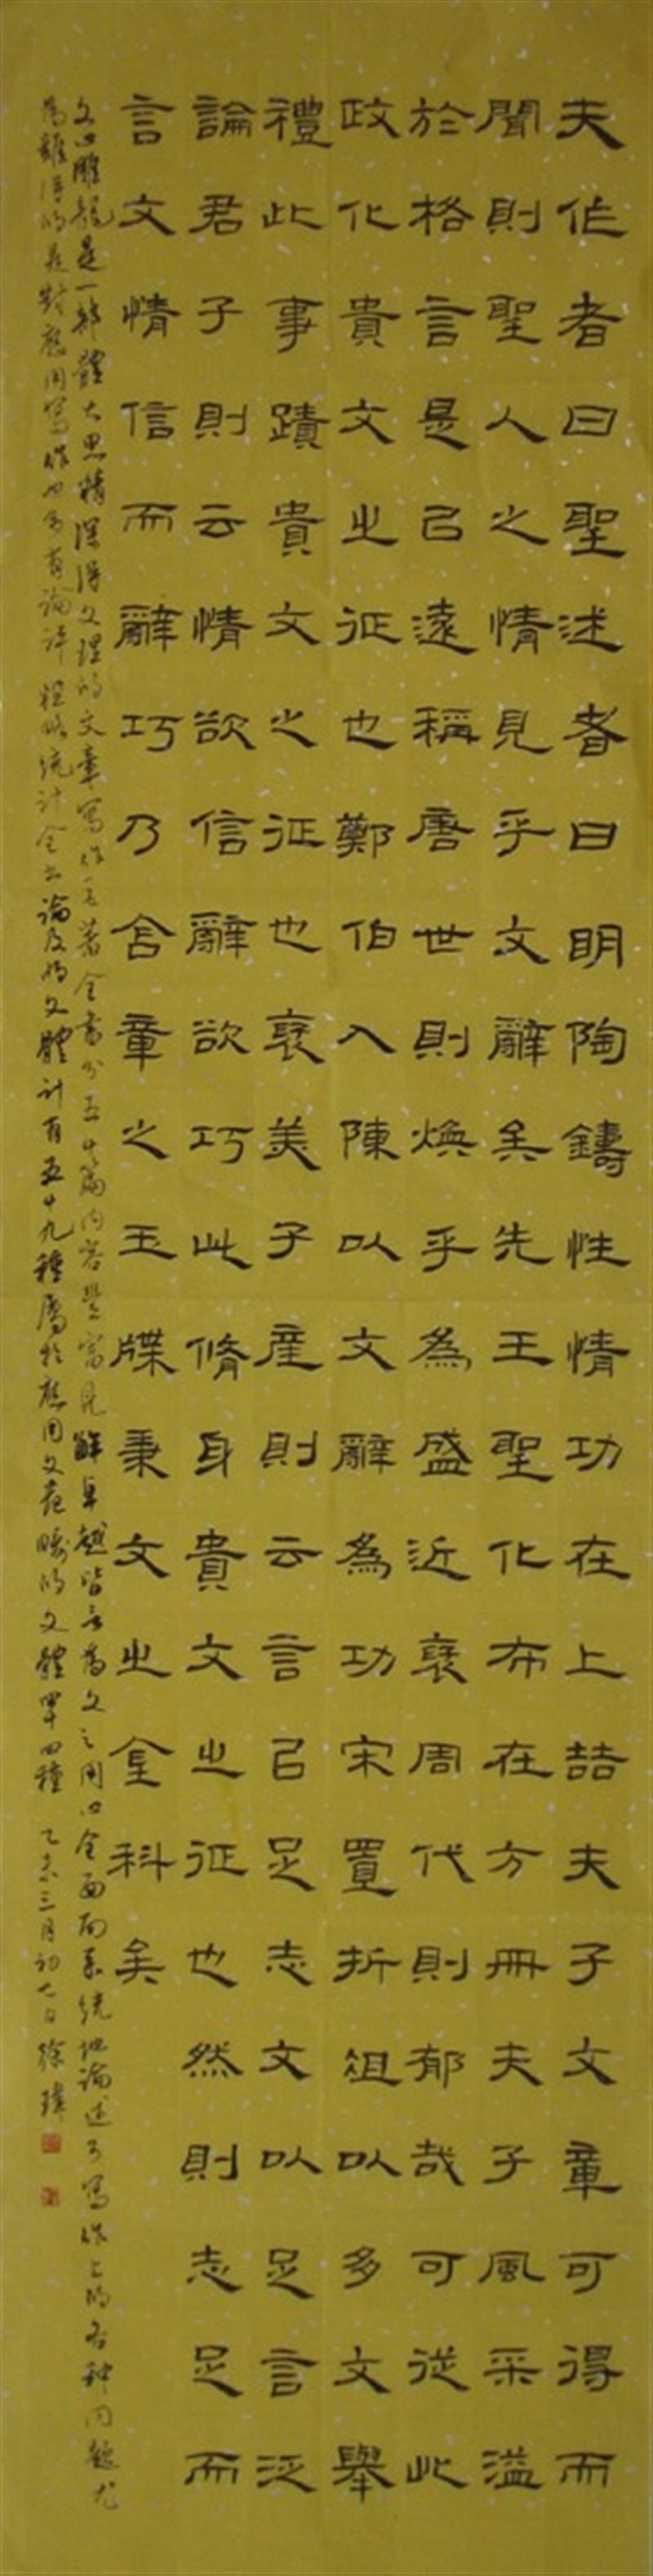 夫作者曰聖述者曰明陶鑄性情功在上喆夫子文章可得而
聞則聖人之情見乎文辭矣先王聖化布在方冊夫子風采溢
於格言是己遠稱唐世則煥乎為盛近褒周代則郁哉可從此
政化貴文之征也鄭伯入陳以文辭為功宋置折俎以多文舉
禮此事蹟貴文之征也褒美子產則云言己足志文以足言泛
論君子則云情欲信辭欲巧此脩身貴文之征也然則志足而
言文情信而辭巧乃含章之玉牒秉文之金科矣
文心雕龍是一部體大思精深得文理的文章寫作之著全書分五十篇內容豐富見解卓越皆言為文之用心全面而系統地論述了寫作上的各種問題尤
為難得的是對應用寫作也多有論評粗略統計全書論及的文體計有五十九種屬於應用文範疇的文體四十四種 乙未三月初七日徐瑋